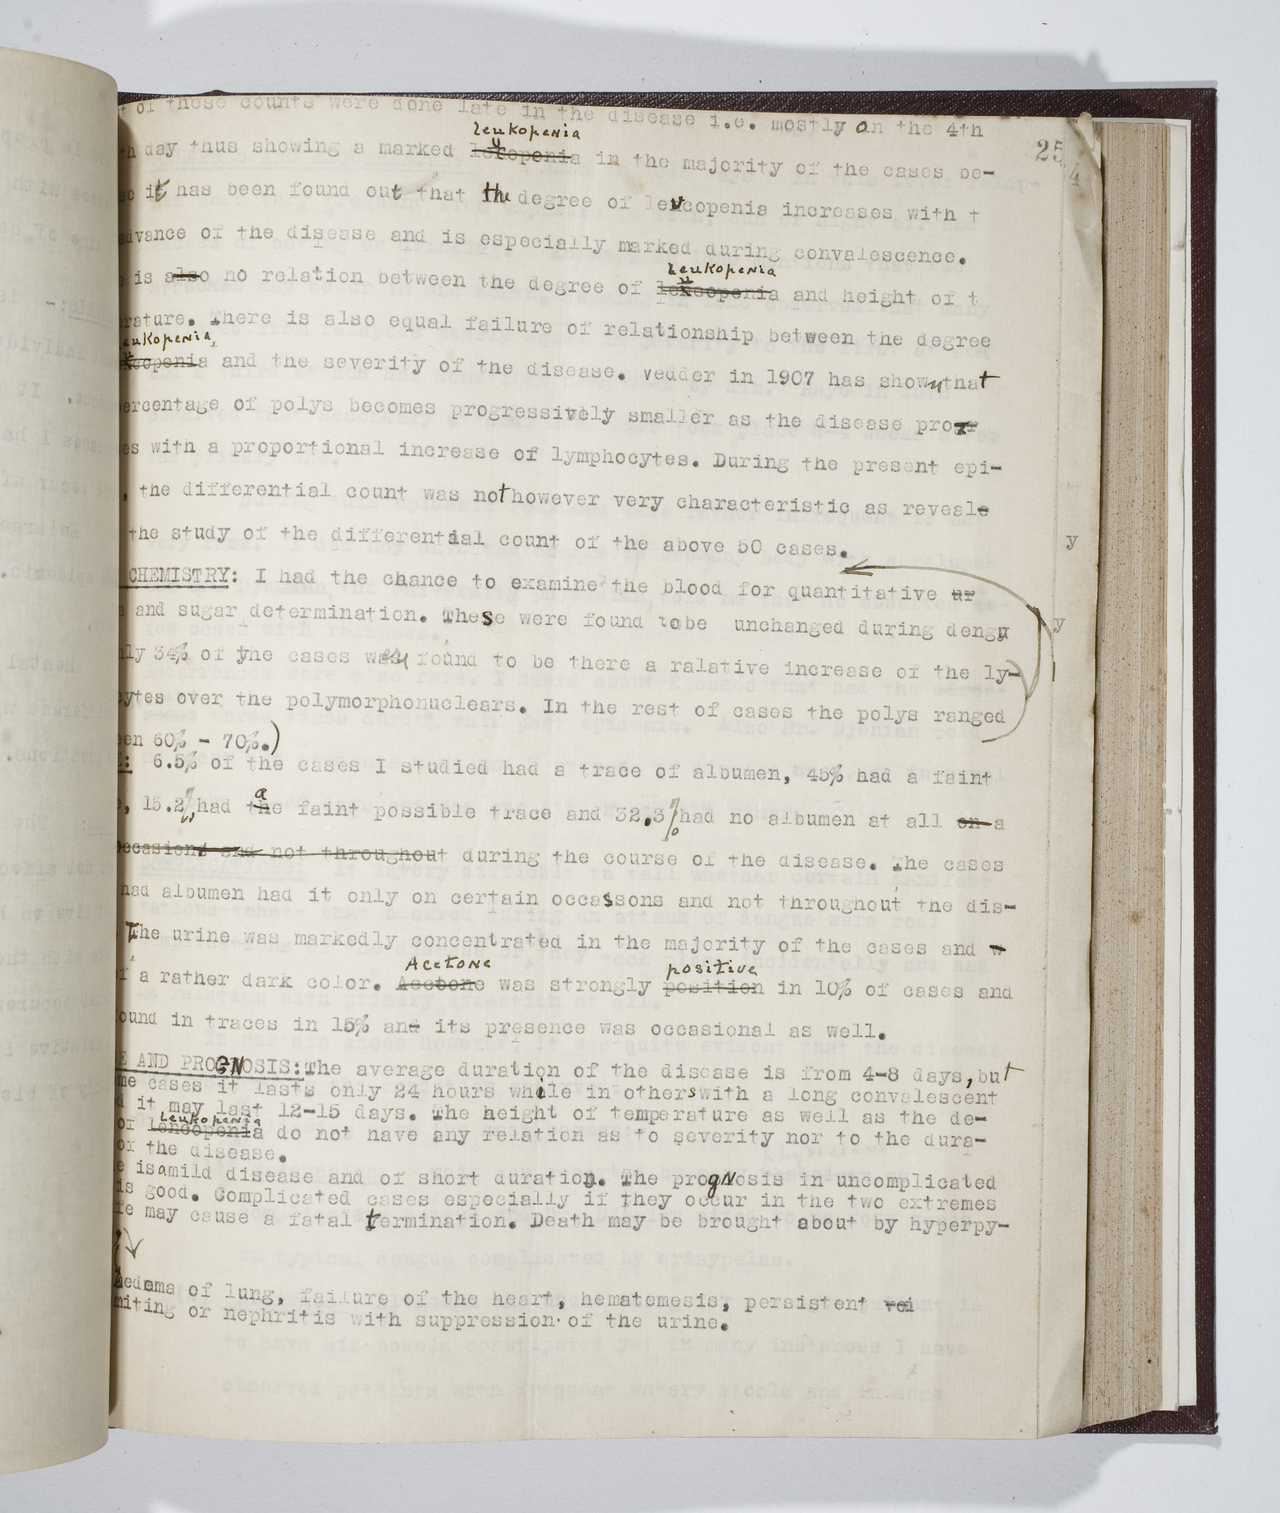 of these counts were done late in the disease i.e. mostly on the 4th
25
leukopenia
day thus showing a marked leucopenia in the majority of the cases be-
4
it has been found out that the degree of leucopenia increases with t
advance of the disease and is especially marked during convalescence.
leukopenia
is also no relation between the degree of and height of t
rature. There is also equal failure of relationship between the degree
eukopenia,
and the severity of the disease. Vedder in 1907 has shown that
ercentage of polys becomes progressively smaller as the disease progr
es with a proportional increase of lymphocytes. During the present epi-
, the differential count was not however very characteristic as reveale
the study of the differential count of the above 50 cases.
y
CHEMISTRY: I had the chance to examine the blood for quantitative ur
and sugar determination. These were found tobe unchanged during dengu
y
ly 34% of the cases were found to be there a ralative increase of the ly-
ytes over the polymorphonuclears. In the rest of cases the polys ranged
en 60% - 70%.)
: 6.5% of the cases I studied had a trace of albumen, 45% had a faint
a
, 15.2% had the faint possible trace and 32.3% had no albumen at all on a
occasions and not throughout during the course of the disease. The cases
had albumen had it only on certain occassons and not throughout the dis-
The urine was markedly concentrated in the majority of the cases and w
Acetone positive
a rather dark color. Acetone was strongly position in 10% of cases and
ound in traces in 15% and its presence was occasional as well.
E AND PROGNOSIS: The average duration of the disease is from 4-8 days, but
me cases it lasts only 24 hours while in others with a long convalescent
d it may last 12-15 days. The height of temperature as well as the de-
leukopenia
of lencopenia do not have any relation as to severity nor to the dura-
of the disease.
e is a mild disease and of short duration. The prognosis in uncomplicated
is good. Complicated cases especially if they occur in the two extremes
fe may cause a fatal termination. Death may be brought about by hyperpy-
aedama of lung, failure of the heart, hematemesis, persistent voi
miting or nephritis with suppression of the urine.